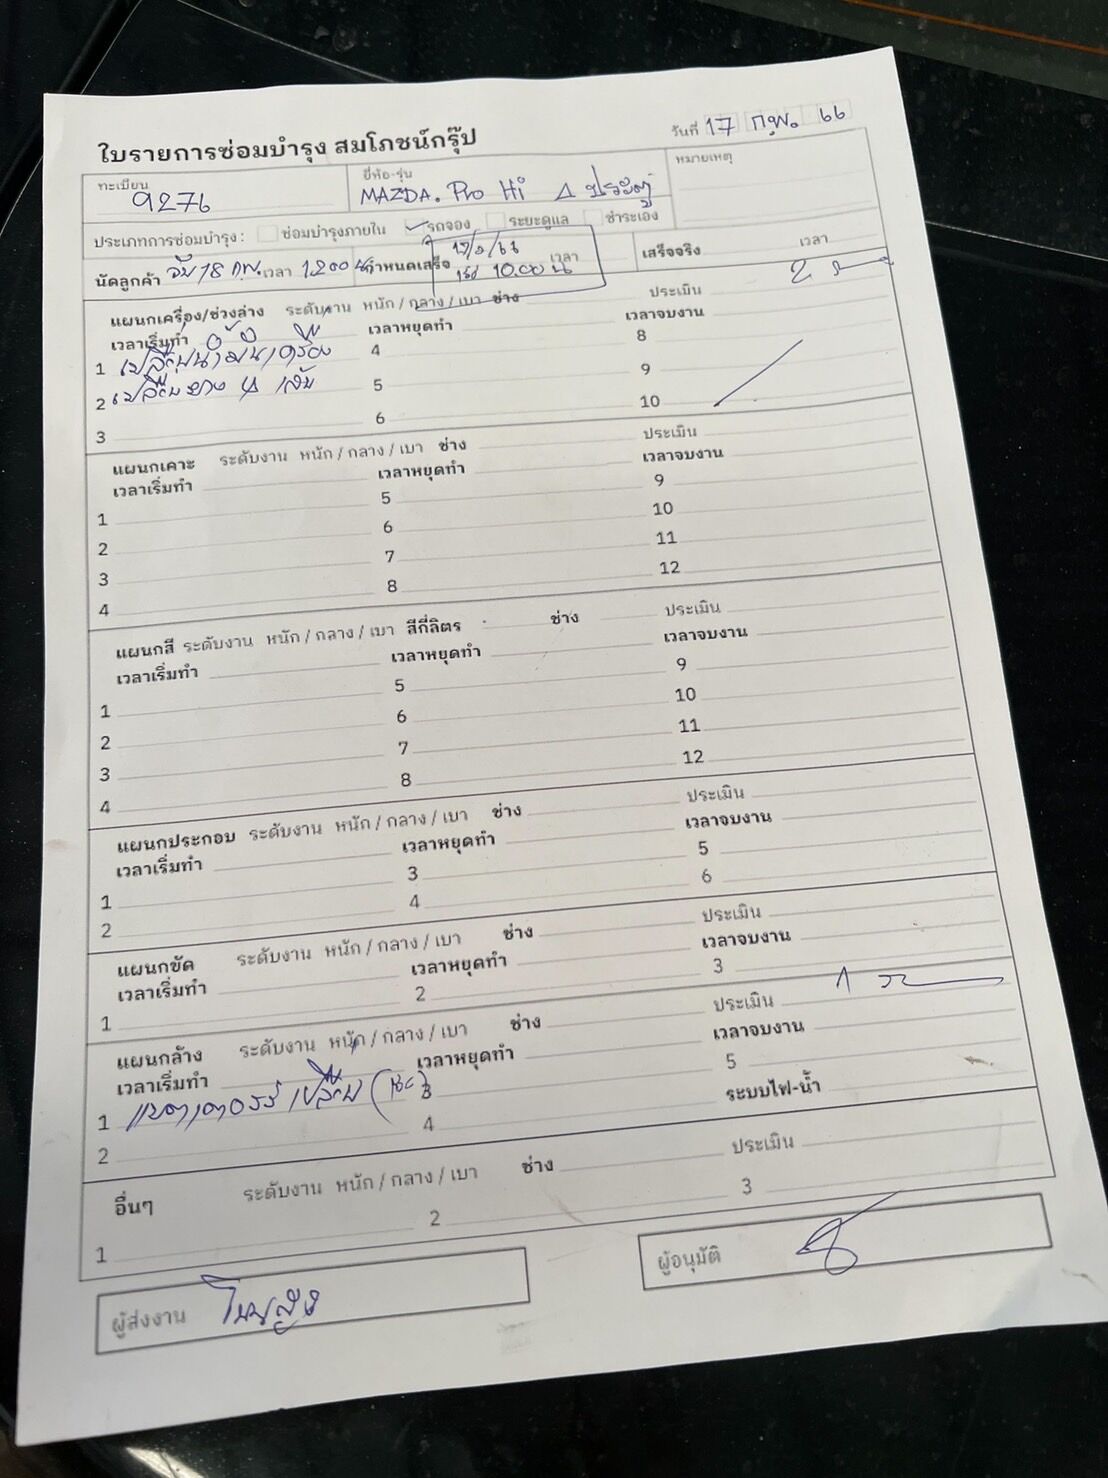 ใบรายการซ่อมบำรุง สมโภชน์กรุ๊ป
วันที่ 17 กพ. 66
ทะเบียน 9276
ยี่ห้อ-รุ่น MAZDA. Pro Hi 4 ประตู
หมายเหตุ
ประเภทการซ่อมบำรุง: ซ่อมบำรุงภายใน รถจอง ระยะดูแล ชำระเอง
นัดลูกค้า 18 กพ. เวลา 12.00 น กำหนดเสร็จ เวลา 10.00 น เสร็จจริง เวลา
แผนกเครื่อง/ช่วงล่าง ระดับงาน หนัก / กลาง / เบา ช่าง ประเมิน
เวลาเริ่มทำ เวลาหยุดทำ เวลาจบงาน
1 เปลี่ยนน้ำมันเครื่อง 4 8
2 เปลี่ยนยาง 4 เส้น 5 9
3 6 10
แผนกเคาะ ระดับงาน หนัก / กลาง / เบา ช่าง ประเมิน
เวลาเริ่มทำ เวลาหยุดทำ เวลาจบงาน
1 5 9
2 6 10
3 7 11
4 8 12
แผนกสี ระดับงาน หนัก / กลาง / เบา สีกี่ลิตร ช่าง ประเมิน
เวลาเริ่มทำ เวลาหยุดทำ เวลาจบงาน
1 5 9
2 6 10
3 7 11
4 8 12
แผนกประกอบ ระดับงาน หนัก / กลาง / เบา ช่าง ประเมิน
เวลาเริ่มทำ เวลาหยุดทำ เวลาจบงาน
1 3 5
2 4 6
แผนกขัด ระดับงาน หนัก / กลาง / เบา ช่าง ประเมิน
เวลาเริ่มทำ เวลาหยุดทำ เวลาจบงาน
1 2 3
แผนกล้าง ระดับงาน หนัก / กลาง / เบา ช่าง ประเมิน
เวลาเริ่มทำ เวลาหยุดทำ เวลาจบงาน
1 แบตเตอรรี่ เปลี่ยน 3 5
2 4 ระบบไฟ-น้ำ
อื่นๆ ระดับงาน หนัก / กลาง / เบา ช่าง ประเมิน
1 2 3
ผู้ส่งงาน
ผู้อนุมัติ